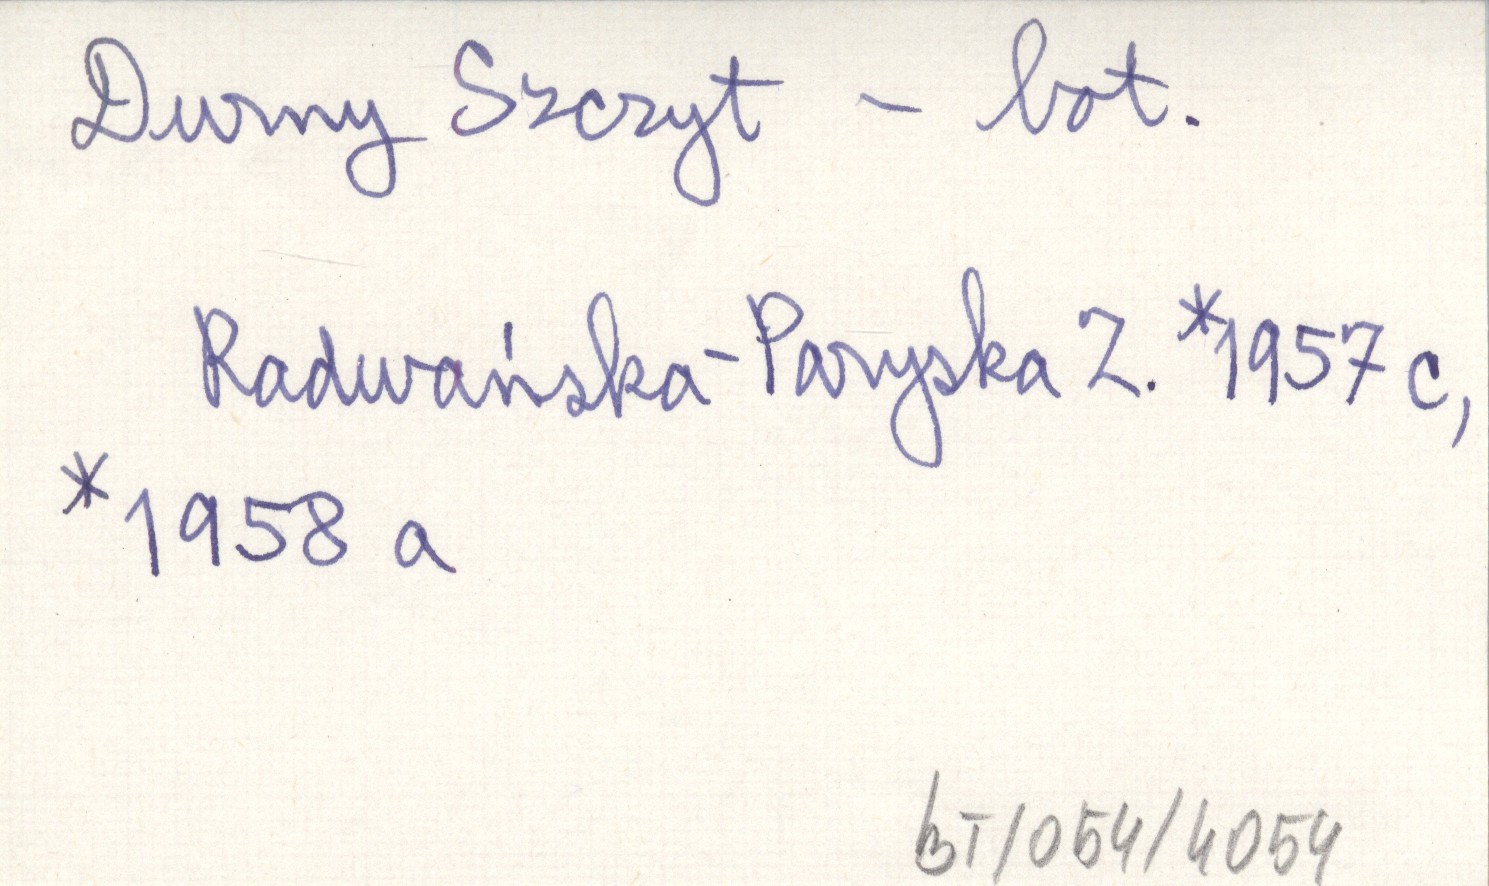 Durny Szczyt - bot.
Radwańska-Paryska Z. *1957 c,
*1958 a
BT/054/4054